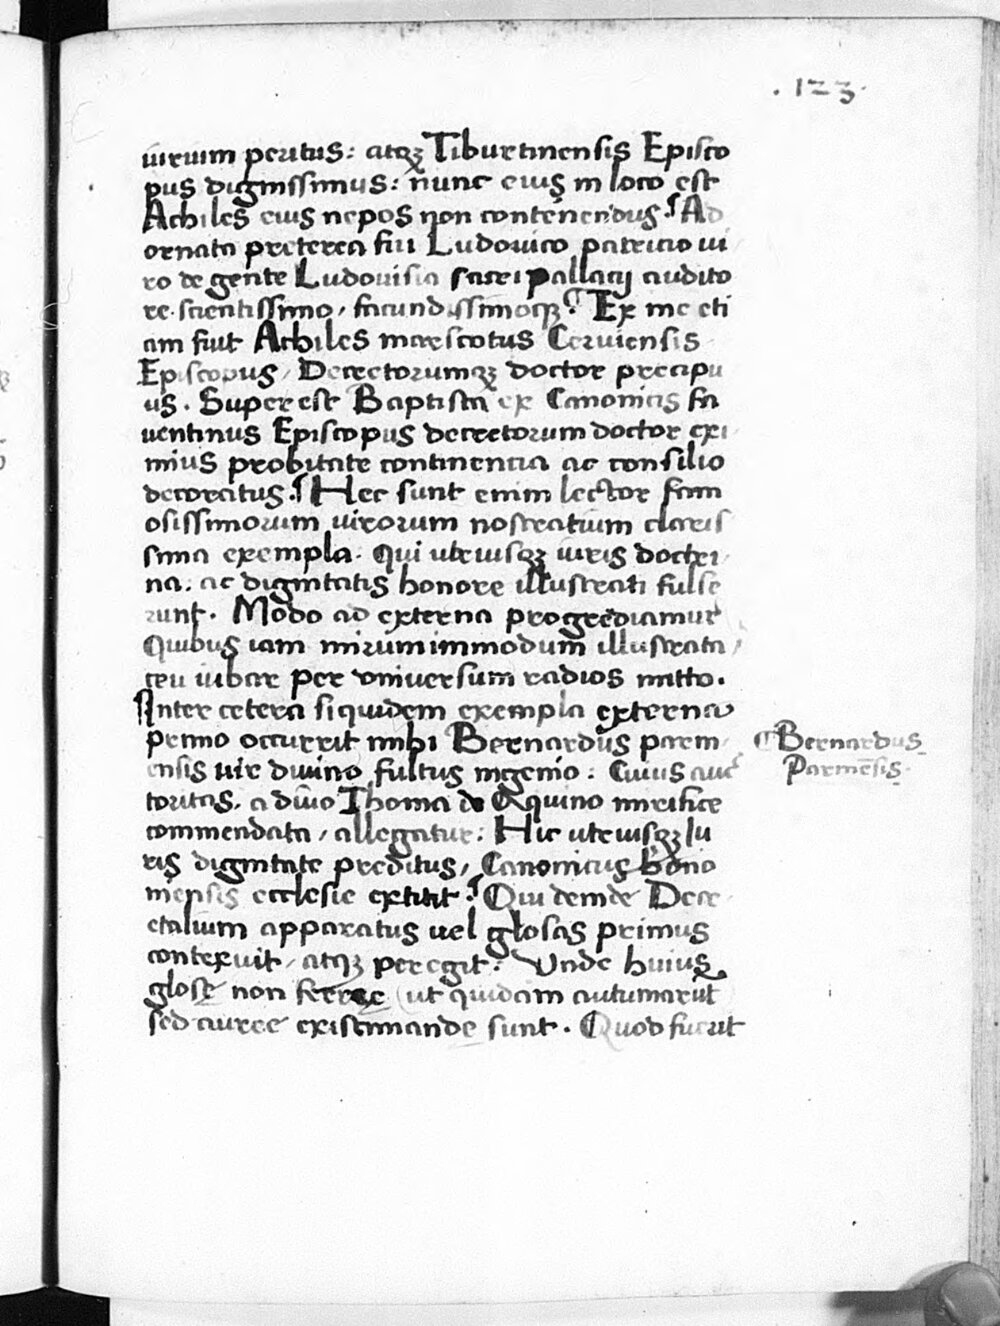 .123.
iurium peritus: atqꝫ Tiburtinensis Episco
pus dignissimus: nunc eius in loco est
Achiles eius nepos non contenendus. Ad
ornata preterea fui Ludouico patricio ui
ro de gente Ludouisia sacri pallacij audito
re scientissimo, facundissimoqꝫ. Ex me eti
am fiut Achiles marescotus Ceruiensis
Episcopus, Decretorumqꝫ doctor precipu
us. Super est Baptista ex Canonicis fa
uentinus Episcopus decretorum doctor exi
mius probitate continentia ac consilio
decoratus. Hec sunt enim lector fam
osissimorum uirorum nostratium claris
sima exempla. Qui utriusqꝫ iuris doctri
na, ac dignitatis honore illustrati fulse
runt. Modo ad externa progrediamur
Quibus iam mirum immodum illustrata,
ceu iubar per vniuersum radios mitto.
Inter cetera siquidem exempla externa
primo occurrit mihi Bernardus parm
ensis uir diuino fultus ingenio: Cuius auc
toritas, a diuo Thoma de Aquino mirifice
commendata, allegatur: Hic utriusqꝫ iu
ris dignitate preditus, Canonicus bono
niensis ecclesie extitit. Qui deinde Decr
etalium apparatus uel glosas primus
contexuit, atqꝫ peregit. Vnde huius
glose non ferree (ut quidam autumarūt)
sed auree existimande sunt. Quod fuerit
Bernardus
Parmēsis.